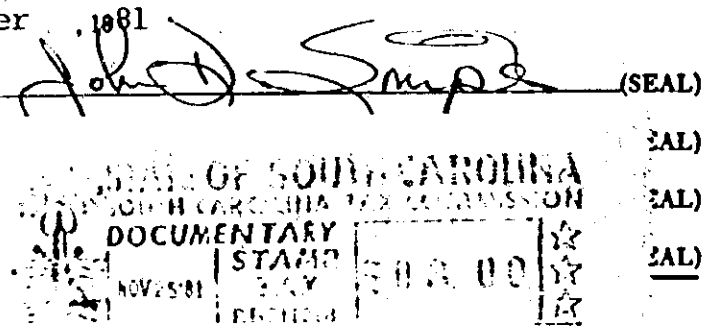 er , 1981 .
John D. (SEAL)
EAL)
STATE OF SOUTH CAROLINA
SOUTH CAROLINA TAX COMMISSION EAL)
DOCUMENTARY
STAMP EAL)
NOV 25 '81 TAX 08.00